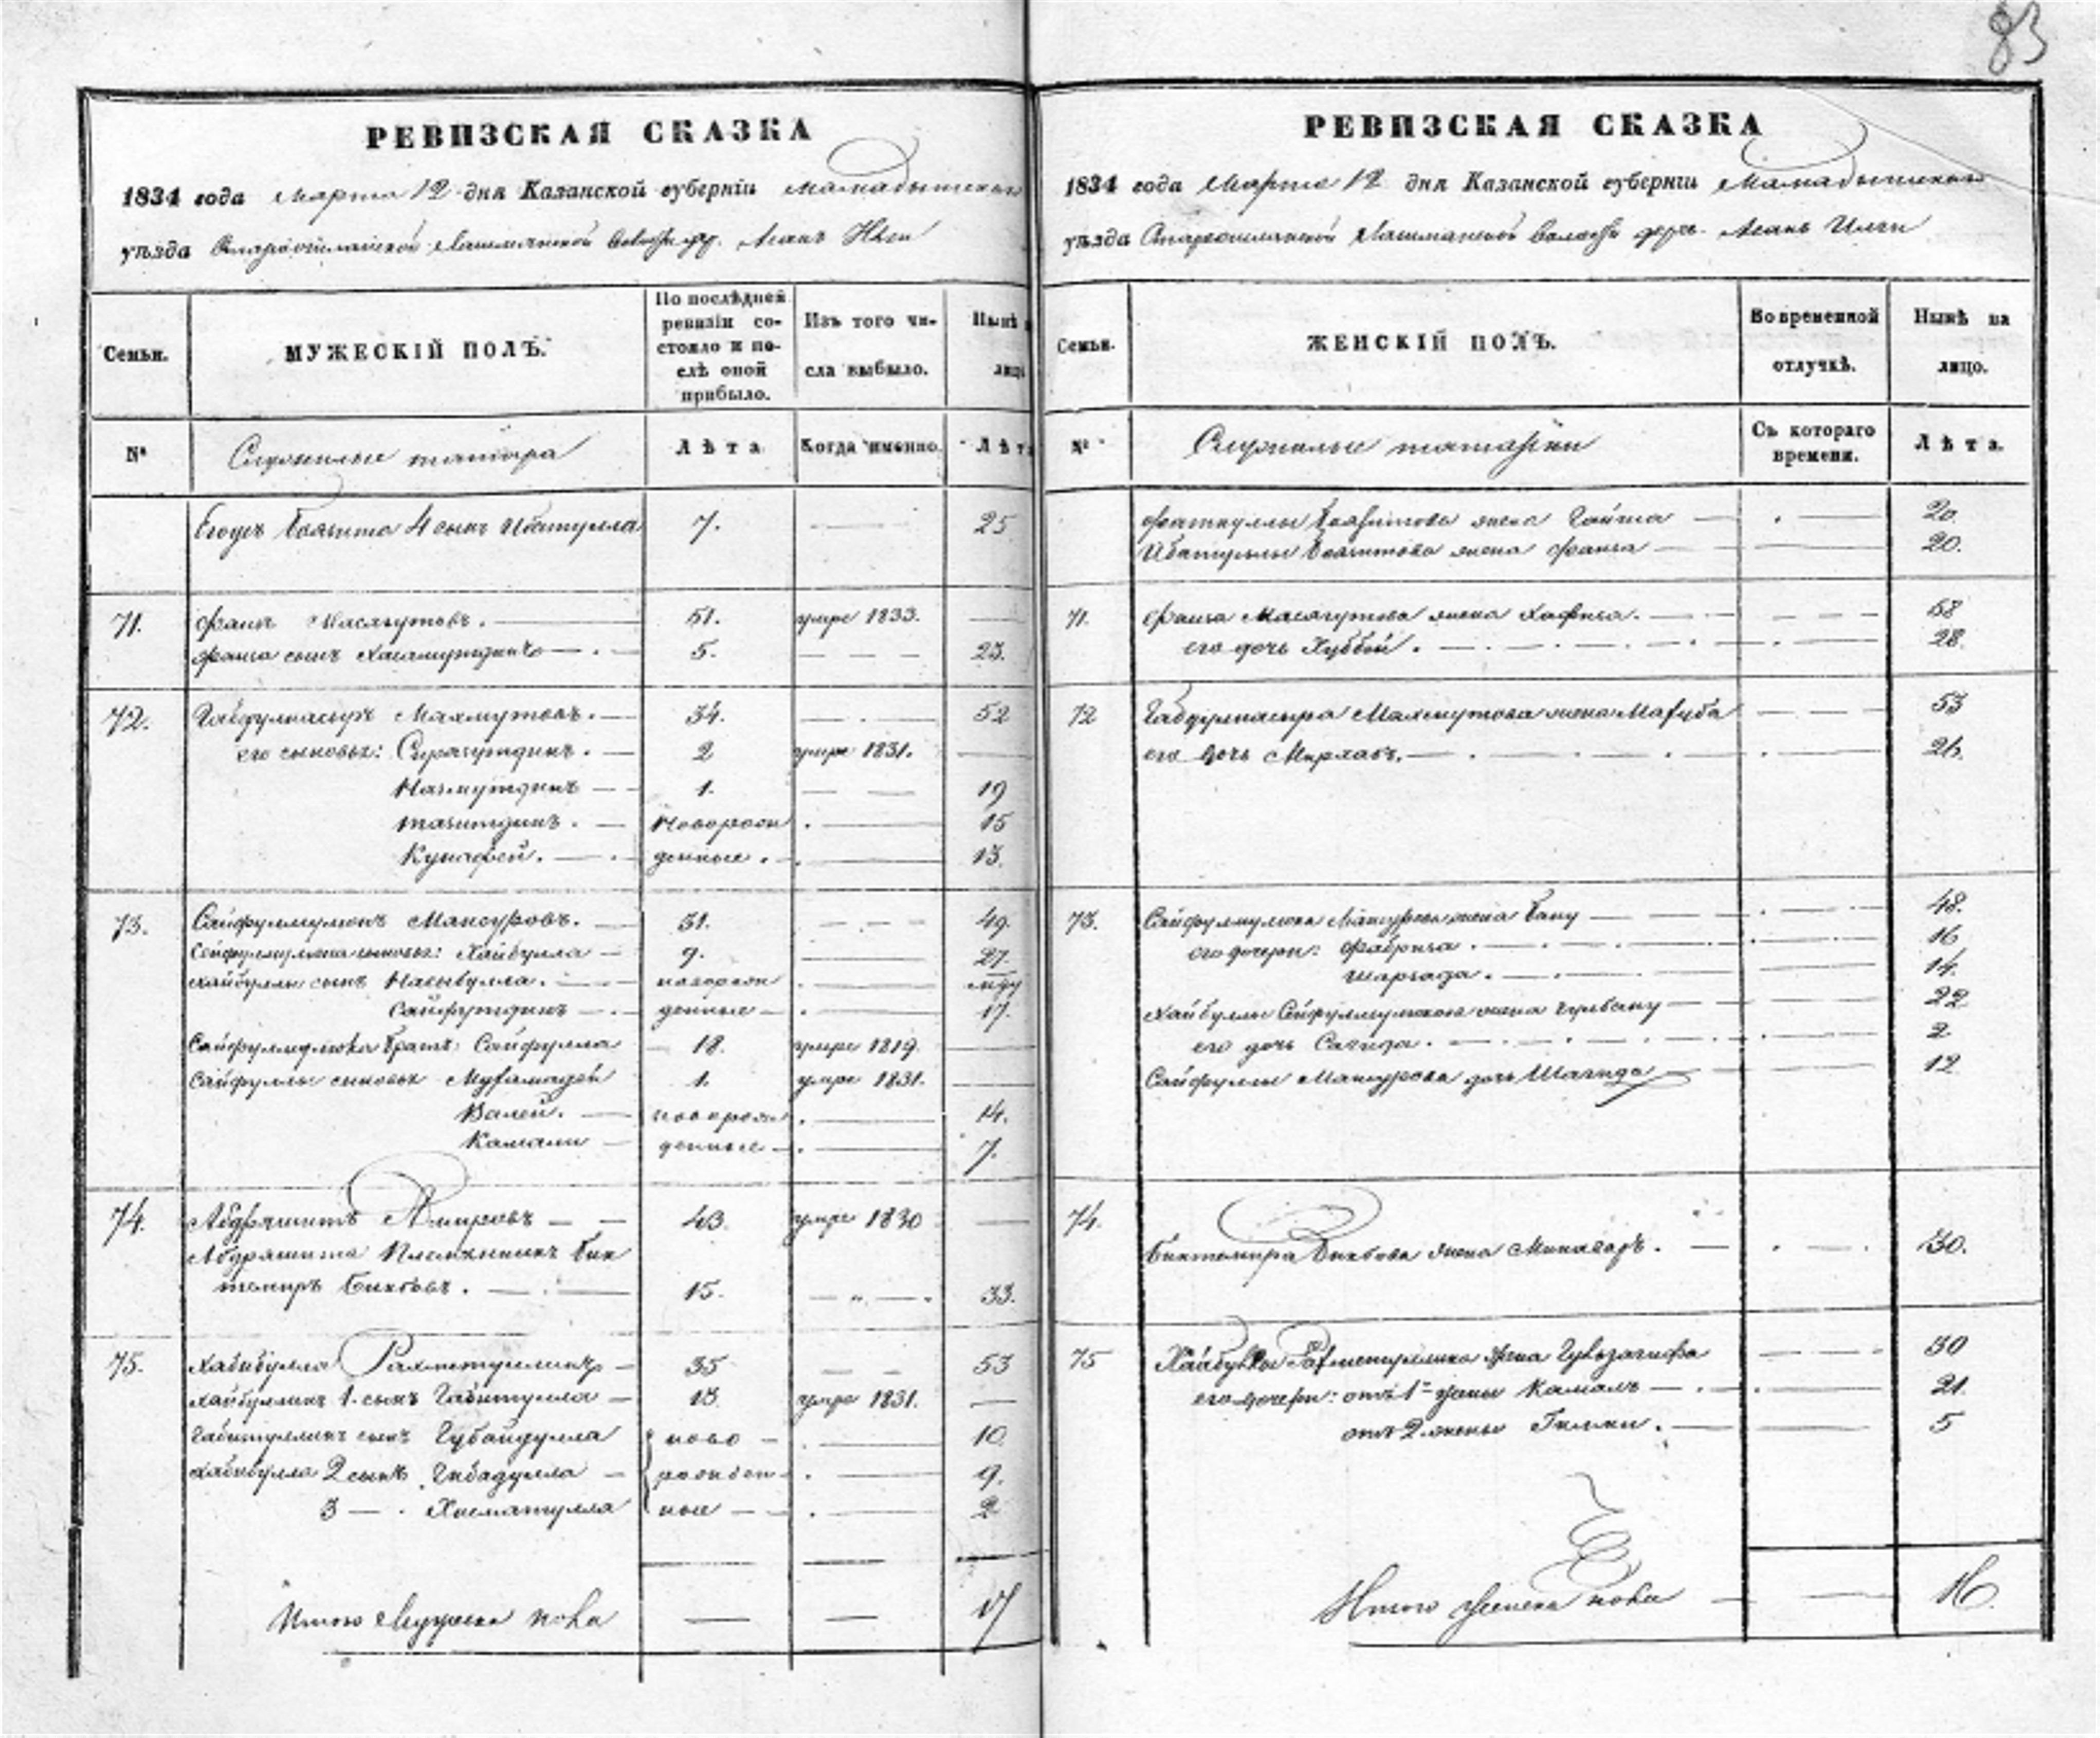 83
РЕВИЗСКАЯ СКАЗКА
1834 года Марта 12 дня Казанской губерніи Мамадышскаго
уѣзда Лашманской дер. Асанъ Илги
Семьи.
МУЖЕСКІЙ ПОЛЪ.
По послѣдней ревизіи состояло и послѣ оной прибыло.
Изъ того числа выбыло.
Нынѣ на лицо
№
Служилые татара
Лѣта
Когда именно.
Лѣта
Егожъ Баязита 4 сынъ Ибатулла 7. 25
71. Фаизъ Масягутовъ. 51. умре 1833.
Фаиза сынъ 5. 23.
72. Габдулнасыръ Махмутовъ. 34. 52
его сыновья: Сиразутдинъ. 2 умре 1831.
Назмутдинъ 1. 19
Тазитдинъ. новорож 15
Кунафей. денные. 13.
73. Сайфулмулюкъ Мансуровъ. 31. 49.
Сейфулмулюка сыновья: Хайбулла 9. 27.
Хайбуллы сынъ Насыбулла. новорож
Сайфутдинъ денные 17.
Сайфулмулюка братъ: Сайфулла 18. умре 1819.
Сайфуллы сыновья 1. умре 1831.
Валей. новорож 14.
Камали денные 7.
74. Абдряшитъ Амировъ 43. умре 1830
Абдряшита племянникъ Бик
темиръ Бикбовъ. 15. 33.
75. Хабибулла Рахметуллинъ 35 53
Хайбуллинъ 1. сынъ Габитулла 13 умре 1831.
Габитуллинъ сынъ Губайдулла ново 10.
Хабибулла 2 сынъ Гибадулла рожден 9.
3 — Хисматулла ные 2
Итого Мужеска пола 17
РЕВИЗСКАЯ СКАЗКА
1834 года Марта 12 дня Казанской губерніи Мамадышскаго
уѣзда Лашманской волости дерв. Асанъ Илги
Семьи.
ЖЕНСКІЙ ПОЛЪ.
Во временной отлучкѣ.
Нынѣ на лицо.
№
Служилые татарки
Съ котораго времени.
Лѣта.
Фаткуллы Баязитова жена Гайша 20.
Ибатуллы Баязитова жена Фаиза 20.
71. Фаиза Масягутова жена Хафиза. 58
его дочь Хуббей. 28.
72 Габдулнасыра Махмутова жена Магуба 53
его дочь 26.
73. Сайфулмулюка Мансурова жена Бану 48.
его дочери: 16
Шаргада. 14.
Хайбуллы Сейфулмулюкова жена Гульбану 22
его дочь Сагида. 2
Сайфуллы Мансурова дочь Шагида 12
74. Биктемира Бикбова жена 30.
75 Хайбуллы Рахметуллина жена 30
его дочери: отъ 1й жены Камалъ 21.
отъ 2 жены 5
Итого Женска пола 16.